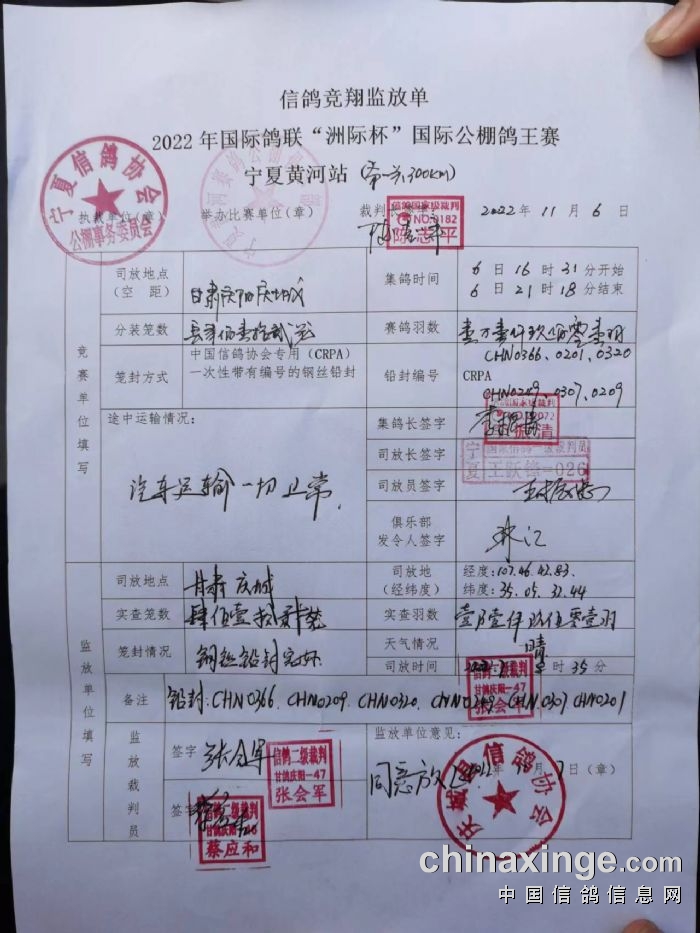 信鸽竞翔监放单
2022年国际鸽联“洲际杯”国际公棚鸽王赛
宁夏黄河站(第一关,300km)
宁夏信鸽协会
公棚事务委员会
执裁单位(章) 举办比赛单位(章) 裁判长 2022年11月6日
信鸽国家级裁判
NO.0182
陈志平
竞赛单位填写
司放地点
(空 距)
甘肃庆阳庆城
集鸽时间
6日16时31分开始
6日21时18分结束
分装笼数
赛鸽羽数
笼封方式
中国信鸽协会专用(CRPA)
一次性带有编号的钢丝铅封
铅封编号
CHN0366、0201、0320
CRPA
CHN0249、0307、0209
途中运输情况:
汽车运输一切正常.
集鸽长签字
司放长签字
宁夏
国家信鸽一级裁判员
王跃锋-026
司放员签字
俱乐部
发令人签字
监放单位填写
司放地点
甘肃庆城
司放地
(经纬度)
经度:107.46.42.83.
纬度:35.05.32.44
实查笼数
实查羽数
笼封情况
钢丝铅封完好
天气情况
晴
司放时间
时35分
备注
铅封:CHN0366.CHN0209.CHN0320.CHN0249.CHN0307 CHN0201
信鸽二级裁判
甘鸽庆阳-47
张会军
监放裁判员
签字 张会军
信鸽二级裁判
甘鸽庆阳-47
张会军
签字
蔡应和
监放单位意见:
同意放飞 2022年 月7日(章)
庆城县信鸽协会
chinaxinge.com
中国信鸽信息网